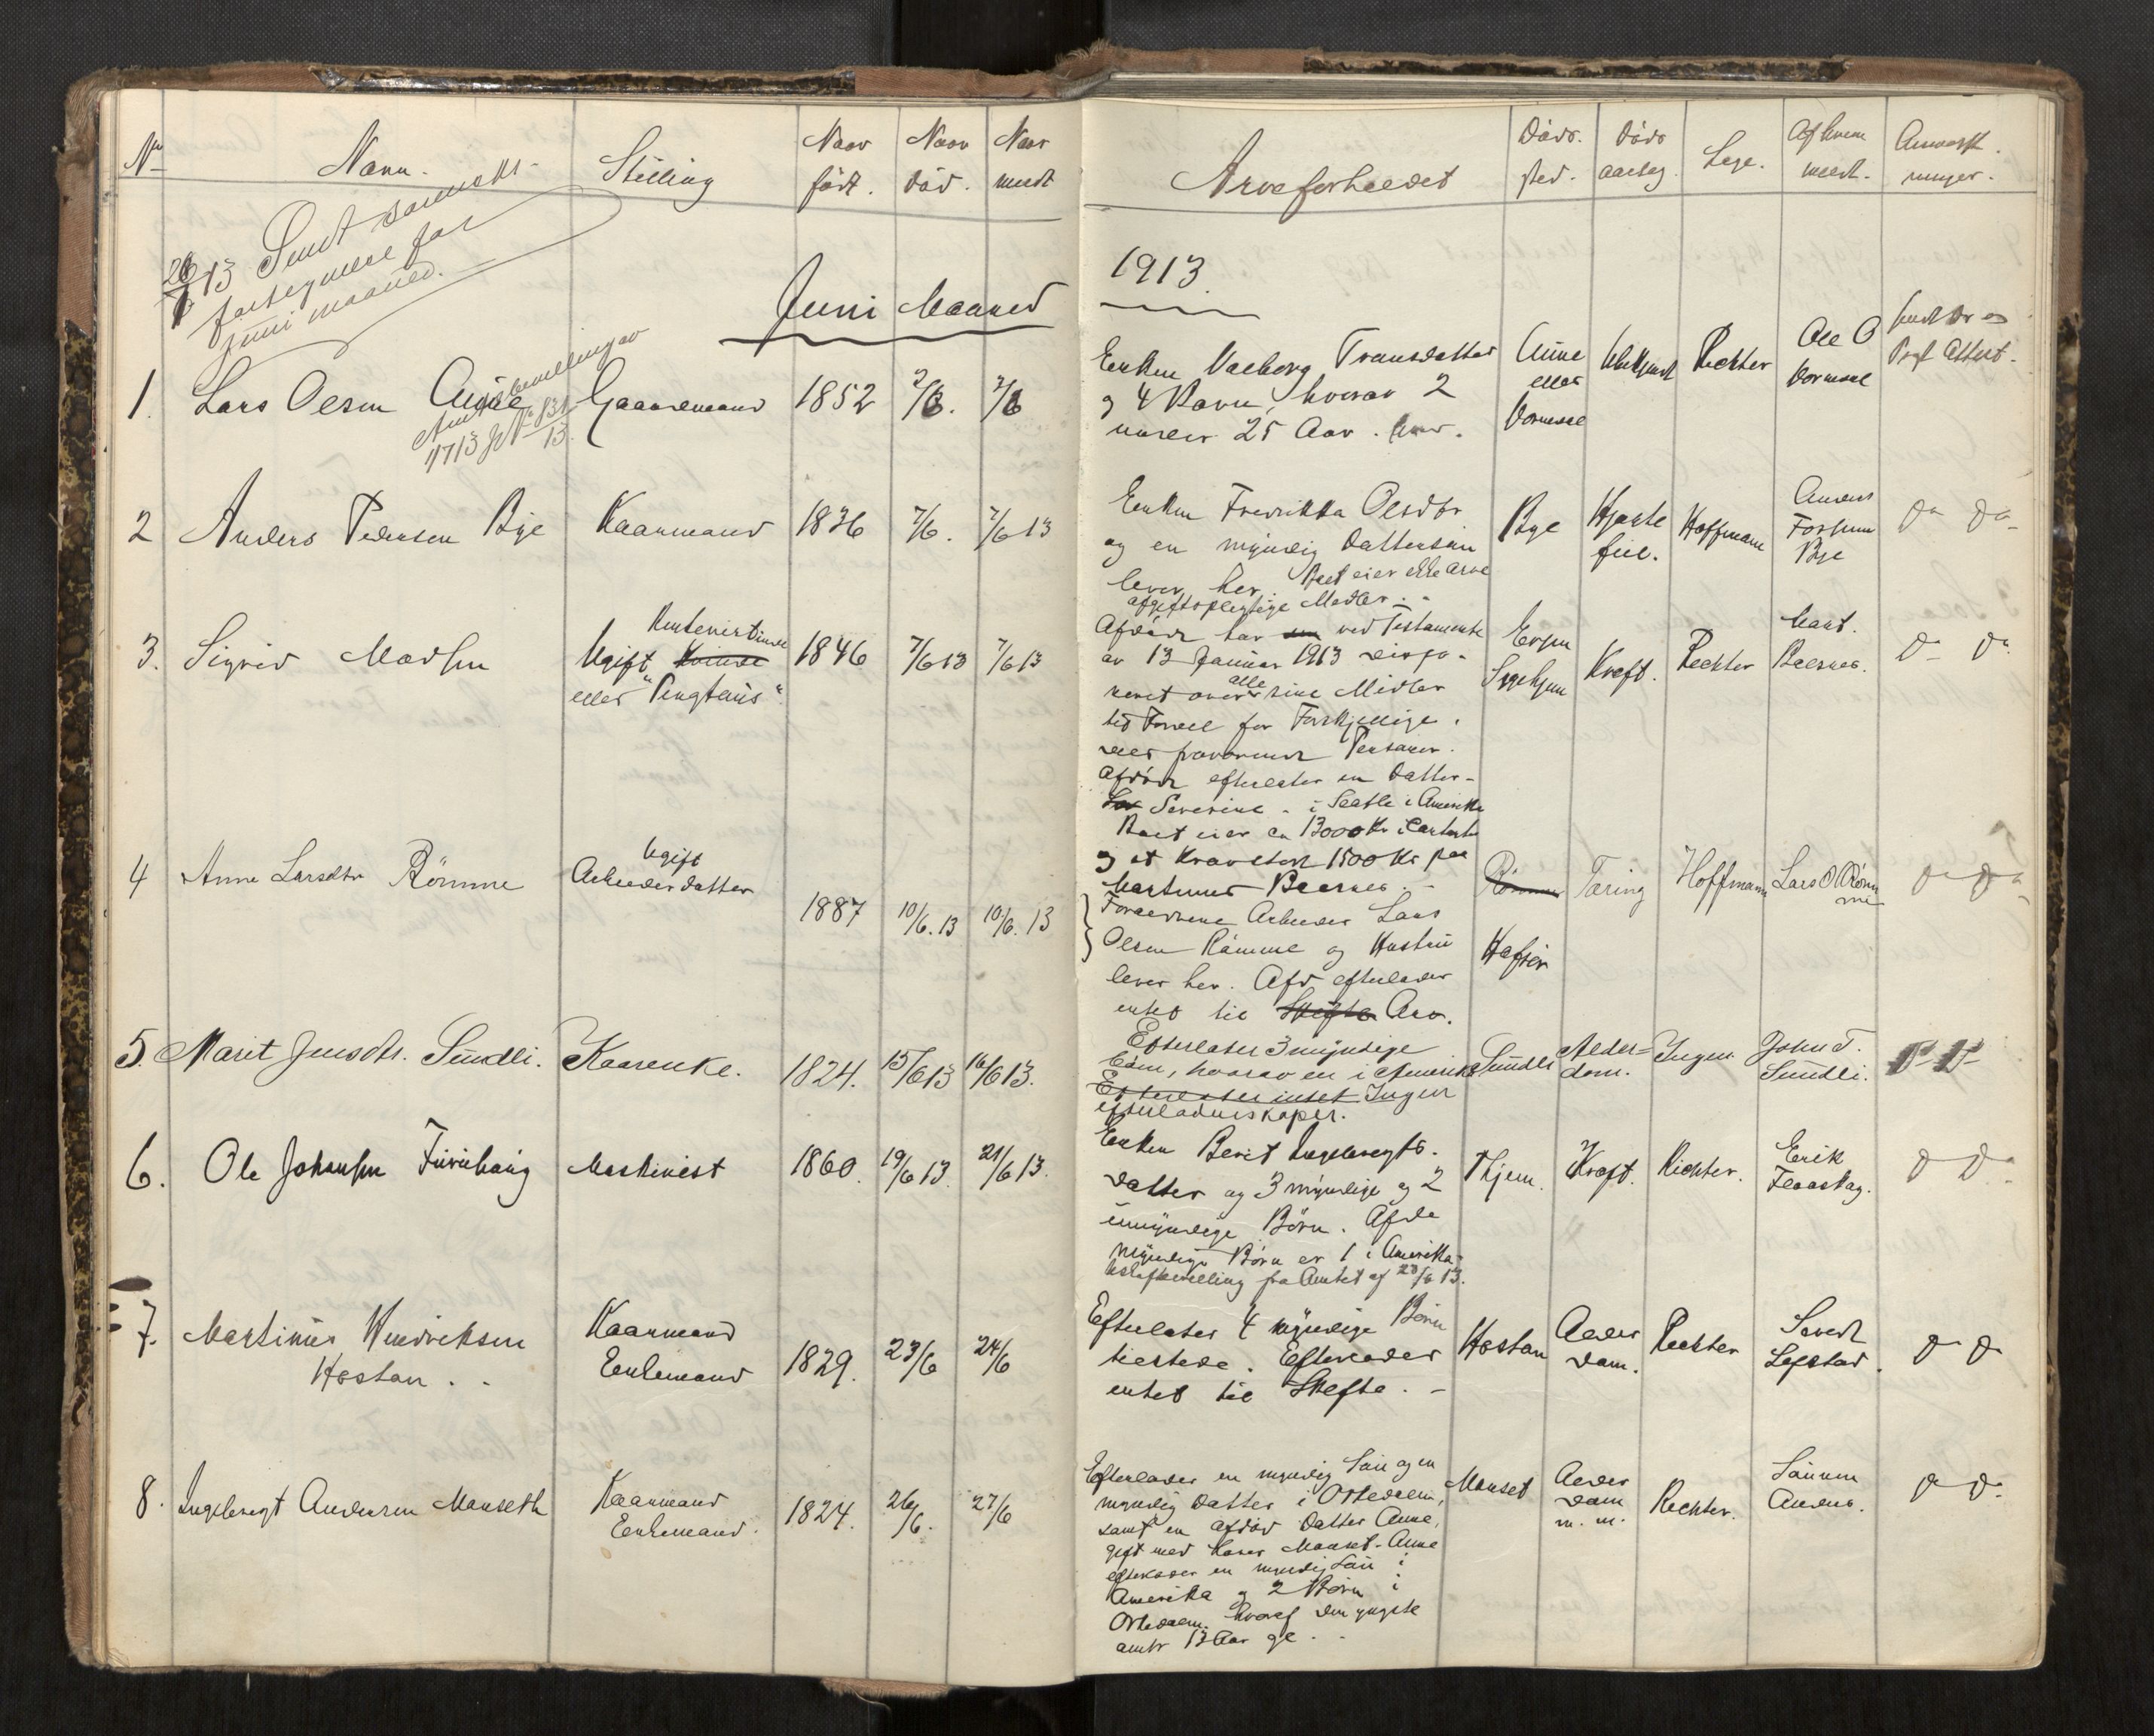 No
Navn.
Stilling
Naar født.
Naar død.
Naar meldt
Arveforholdet
Døds sted.
Døds aarsag.
Læge.
Af hvem meldt.
Anmærkninger.
26/6 13 Sendt
fortegnelse for
juni maaned.
Juni Maaned
1913.
1. Lars Olsen Aune Gaardmand 1852 2/6. 7/6
Enken Valborg Transdatter
og 4 Børn, hvorav 2
under 25 Aar.
Aune
eller
Vormdal
Ukjendt
Richter
Ole O
Vormdal
sendt Dr og
Prof Attest.
2 Anders Pedersen Bye Kaarmand 1836 7/6. 7/6 13
Enken Fredrikka Olsdtr
og en myndig Dattersøn
lever her. Boet eier ikke Arve
afgiftspligtige Midler. -
Bye
Hjerte
feil.
Hoffmann
Anders
Forsem
Bye
Do Do
3. Sigrid Madsen
Rentenistinde
Ugift Kvinde
eller "Pengtaus".
1846 7/6 13 7/6 13
Afdøde har en ved Testamente
av 13 Januar 1913 dispo-
neret over alle sine Midler
til Fordel for Forskjellige.
Afdøde efterlater en Datter-
Severine - i Seatle i Amerika
Boet eier ca 13000 Kr i Contant
og et Kravstort 1500 Kr paa
Martinus Baernes. -
Evjen
Sygehjem
Kræft.
Richter
Mart.
Baernes.
Do Do
4 Anne Larsdtr Rømme
Ugift
Arbeider datter
1887 10/6. 13 10/6. 13
Forældrene Arbeider Lars
Olsen Rømme og Hustru
lever her. Afd efterlader
intet til Skifte Arv.
Rømme
Hafsør
Tæring
Hoffmann
Lars O Rømme
Do Do
5. Marit Jensdtr. Sundli. Kaarenke. 1824. 15/6 13 16/6 13.
Efterlater 3 myndige
Børn, hvorav en i Amerika
Efterlater intet Ingen
efterladenskaper.
Sundli
Alder-
dom.
Ingen
John T.
Sundli.
Do Do
6. Ole Johansen Furuhaug Maskinist 1860. 19/6 13. 21/6 13.
Enken Berit Ingebregts-
datter og 3 myndige og 2
umyndige Børn. Af de
myndige Børn er 1 i Amerika-
Uskiftbevilling fra Amtet af 28/6 13.
Hjem.
Kræft.
Richter.
Erik
Flaaskag.
Do Do
7. Martinus Hendriksen
Hostan. -
Kaarmand
Enkemand
1829. 23/6 24/6
Efterlater 4 myndige Børn
tilstede. Efterlader
intet til Skifte. -
Hostan
Alder
dom.
Richter
Sivert
Lefstad.
Do Do
8. Ingebregt Andersen Manseth
Kaarmand
Enkemand.
1824. 26/6. 27/6
Efterlader en myndig Søn og en
myndig Datter i Orkedalen,
samt en afdød Datter Anne,
gift med Manset - Anne
efterlader en myndig Søn i
Amerika og 2 Børn i
Orkedalen. hvoraf den yngste
omtr 13 Aar gl. -
Manset
Alder
dom
m. m.
Richter.
Sønnen
Anders.
Do Do